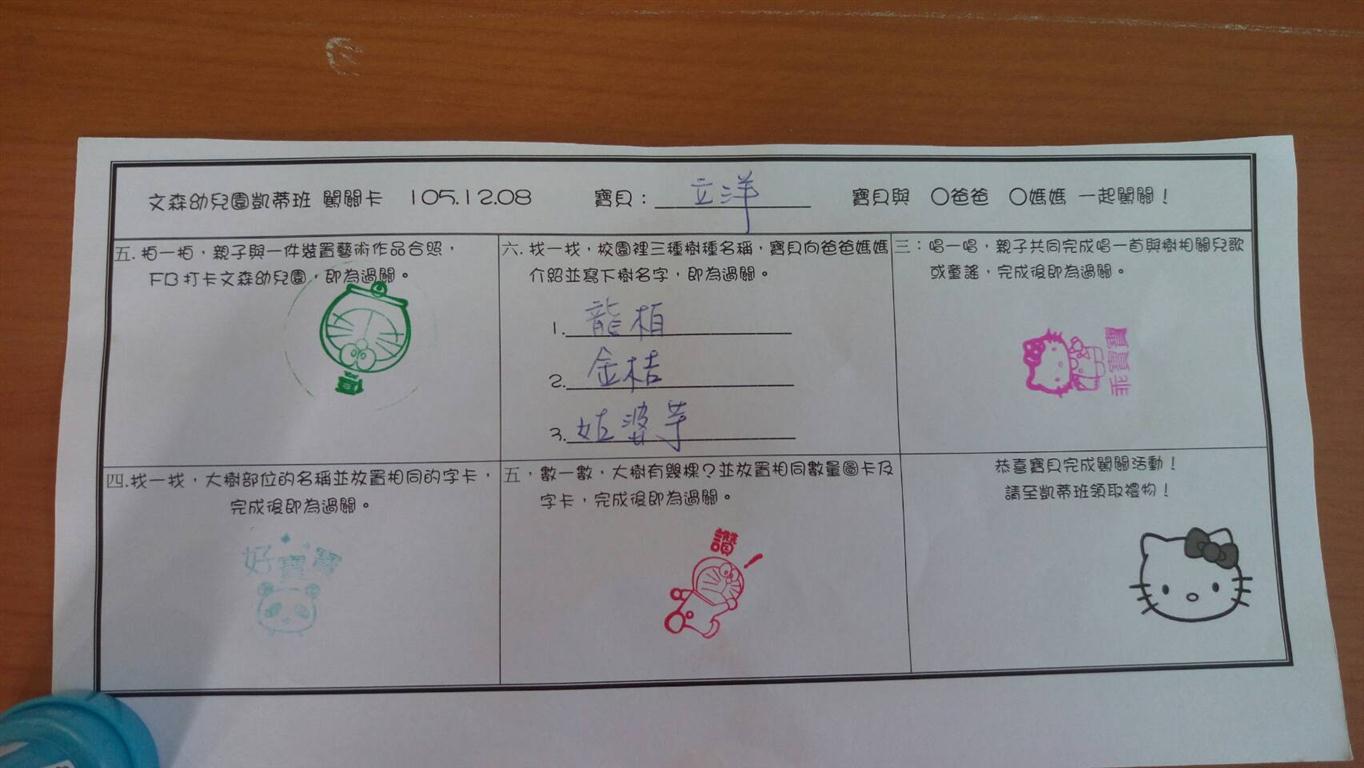 文森幼兒園凱蒂班 闖關卡 105.12.08 寶貝：立洋 寶貝與 〇爸爸 〇媽媽 一起闖關！
五.拍一拍，親子與一件裝置藝術作品合照，
FB打卡文森幼兒園，即為過關。
六.找一找，校園裡三種樹種名稱，寶貝向爸爸媽媽
介紹並寫下樹名字，即為過關。
1.龍柏
2.金桔
3.姑婆芋
三：唱一唱，親子共同完成唱一首與樹相關兒歌
或童謠，完成後即為過關。
寶寶乖
四.找一找，大樹部位的名稱並放置相同的字卡，
完成後即為過關。
好寶寶
五，數一數，大樹有幾棵？並放置相同數量圖卡及
字卡，完成後即為過關。
讚
恭喜寶貝完成闖關活動！
請至凱蒂班領取禮物！